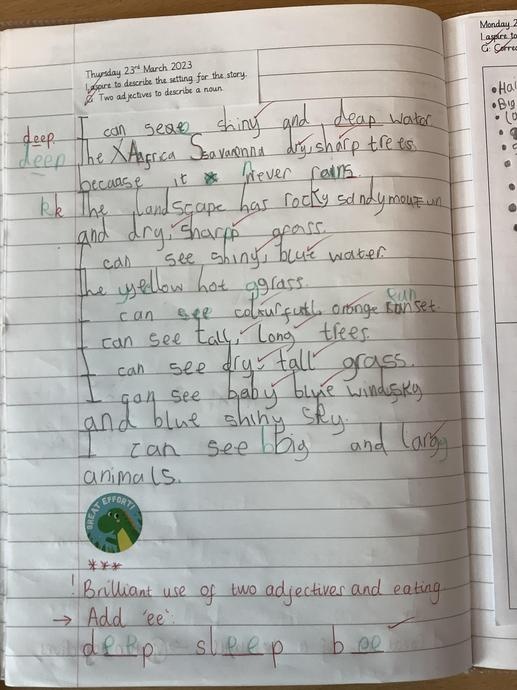 Thursday 23rd March 2023
I aspire to describe the setting for the story.
Two adjectives to describe a noun
Monday 2
I aspire to
I can see shiny and deap water
deep
deep
The Africa Savannna dry, sharp trees
because it Never rains
kk
The landscape has rocky sandy mountun
and dry, sharp grass.
I can see shiny, blue water.
The yellow hot grass.
I can see colourfull orange sunset.
sun
I can see tall, long trees.
I can see dry, tall grass.
I can see baby blue windsky
and blue shiny sky.
I can see big and larg
animals.
GREAT EFFORT!
***
! Brilliant use of two adjectives and eating
→ Add 'ee':
deep sleep bee